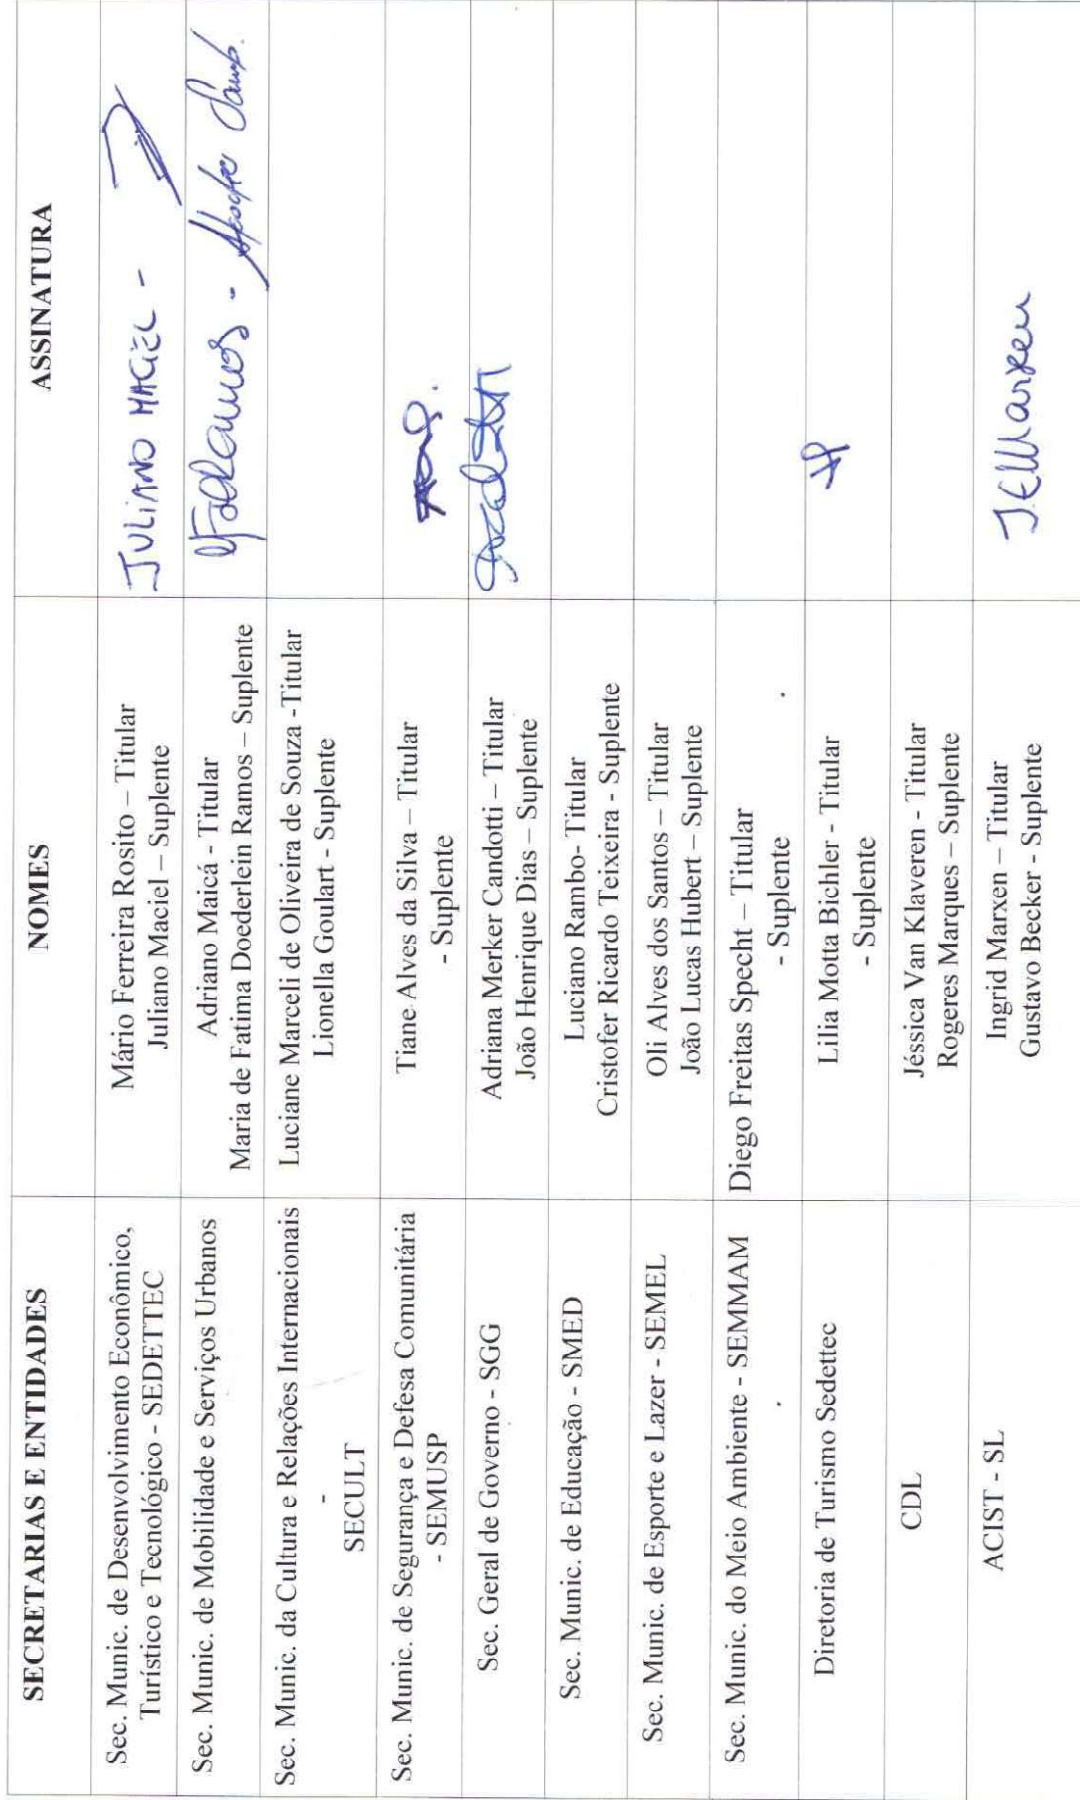 SECRETARIAS E ENTIDADES
NOMES
ASSINATURA
Sec. Munic. de Desenvolvimento Econômico,
Turístico e Tecnológico - SEDETTEC
Mário Ferreira Rosito – Titular
Juliano Maciel – Suplente
JULIANO MACIEL -
Sec. Munic. de Mobilidade e Serviços Urbanos
Adriano Maicá - Titular
Maria de Fatima Doederlein Ramos – Suplente
Sec. Munic. da Cultura e Relações Internacionais
-
SECULT
Luciane Marceli de Oliveira de Souza -Titular
Lionella Goulart - Suplente
Sec. Munic. de Segurança e Defesa Comunitária
- SEMUSP
Tiane Alves da Silva – Titular
- Suplente
Sec. Geral de Governo - SGG
Adriana Merker Candotti – Titular
João Henrique Dias – Suplente
Sec. Munic. de Educação - SMED
Luciano Rambo- Titular
Cristofer Ricardo Teixeira - Suplente
Sec. Munic. de Esporte e Lazer - SEMEL
Oli Alves dos Santos – Titular
João Lucas Hubert – Suplente
Sec. Munic. do Meio Ambiente - SEMMAM
Diego Freitas Specht – Titular
- Suplente
Diretoria de Turismo Sedettec
Lilia Motta Bichler - Titular
- Suplente
CDL
Jéssica Van Klaveren - Titular
Rogeres Marques – Suplente
ACIST - SL
Ingrid Marxen – Titular
Gustavo Becker - Suplente